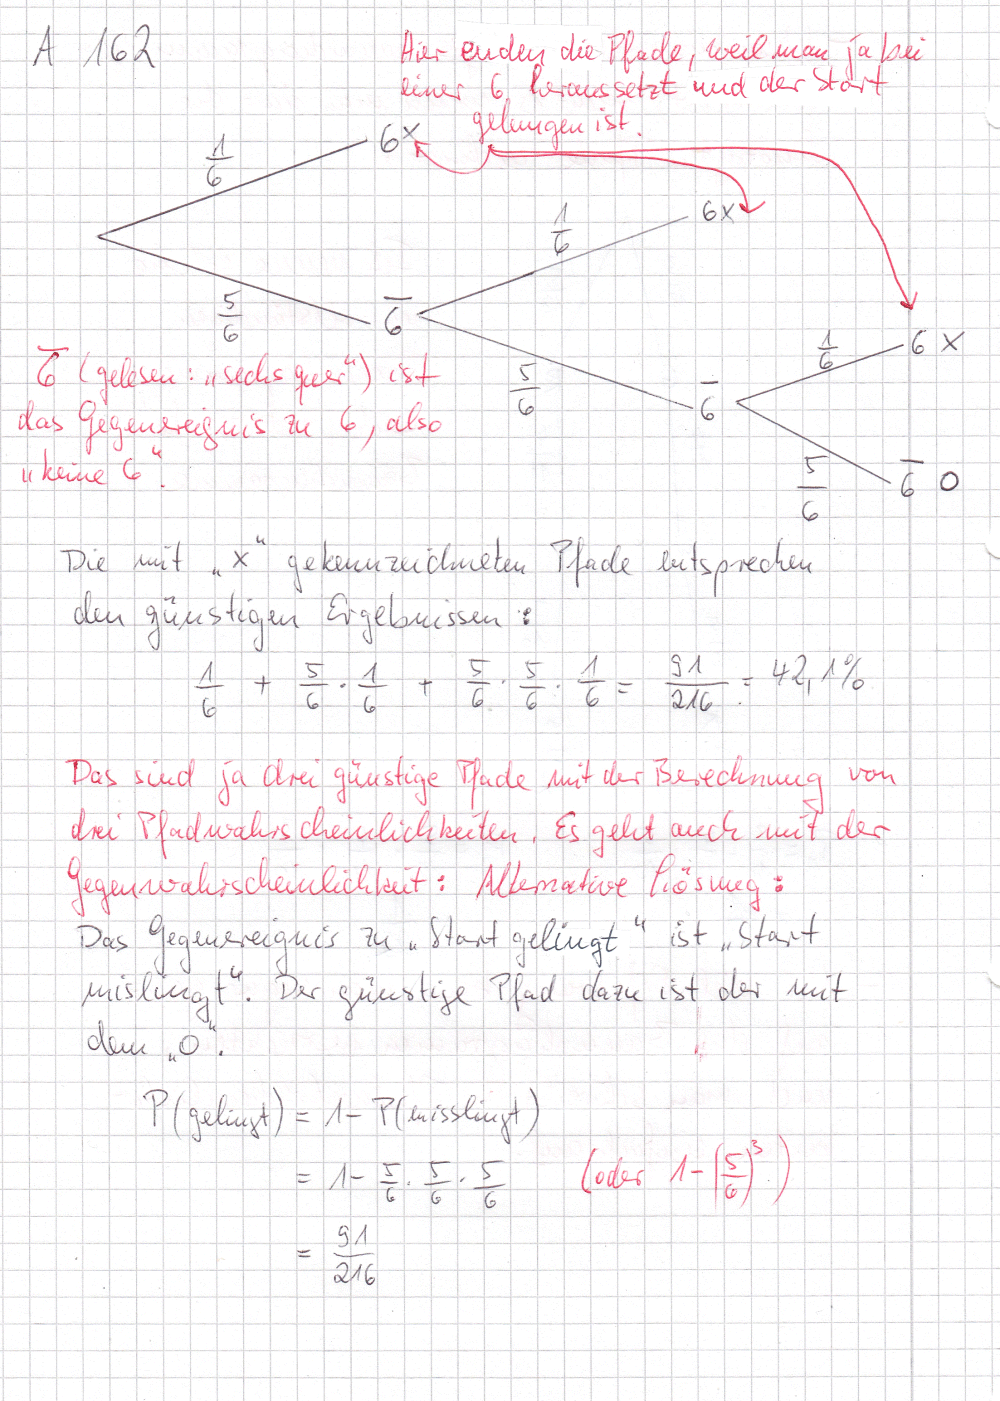 A 162
Hier enden die Pfade, weil man ja bei
einer 6 heraussetzt und der Start
gelungen ist.
1/6 6 x
5/6 6̅
1/6 6 x
5/6 6̅
1/6 6 x
5/6 6̅ 0
6̅ (gelesen: „sechs quer“) ist
das Gegenereignis zu 6, also
„keine 6“.
Die mit „x“ gekennzeichneten Pfade entsprechen
den günstigen Ergebnissen:
1/6 + 5/6 · 1/6 + 5/6 · 5/6 · 1/6 = 91/216 = 42,1%
Das sind ja drei günstige Pfade mit der Berechnung von
drei Pfadwahrscheinlichkeiten. Es geht auch mit der
Gegenwahrscheinlichkeit: Alternative Lösung:
Das Gegenereignis zu „Start gelingt“ ist „Start
mislingt“. Der günstige Pfad dazu ist der mit
dem „0“.
P(gelingt) = 1 - P(misslingt)
= 1 - 5/6 · 5/6 · 5/6 (oder 1 - (5/6)³)
= 91/216